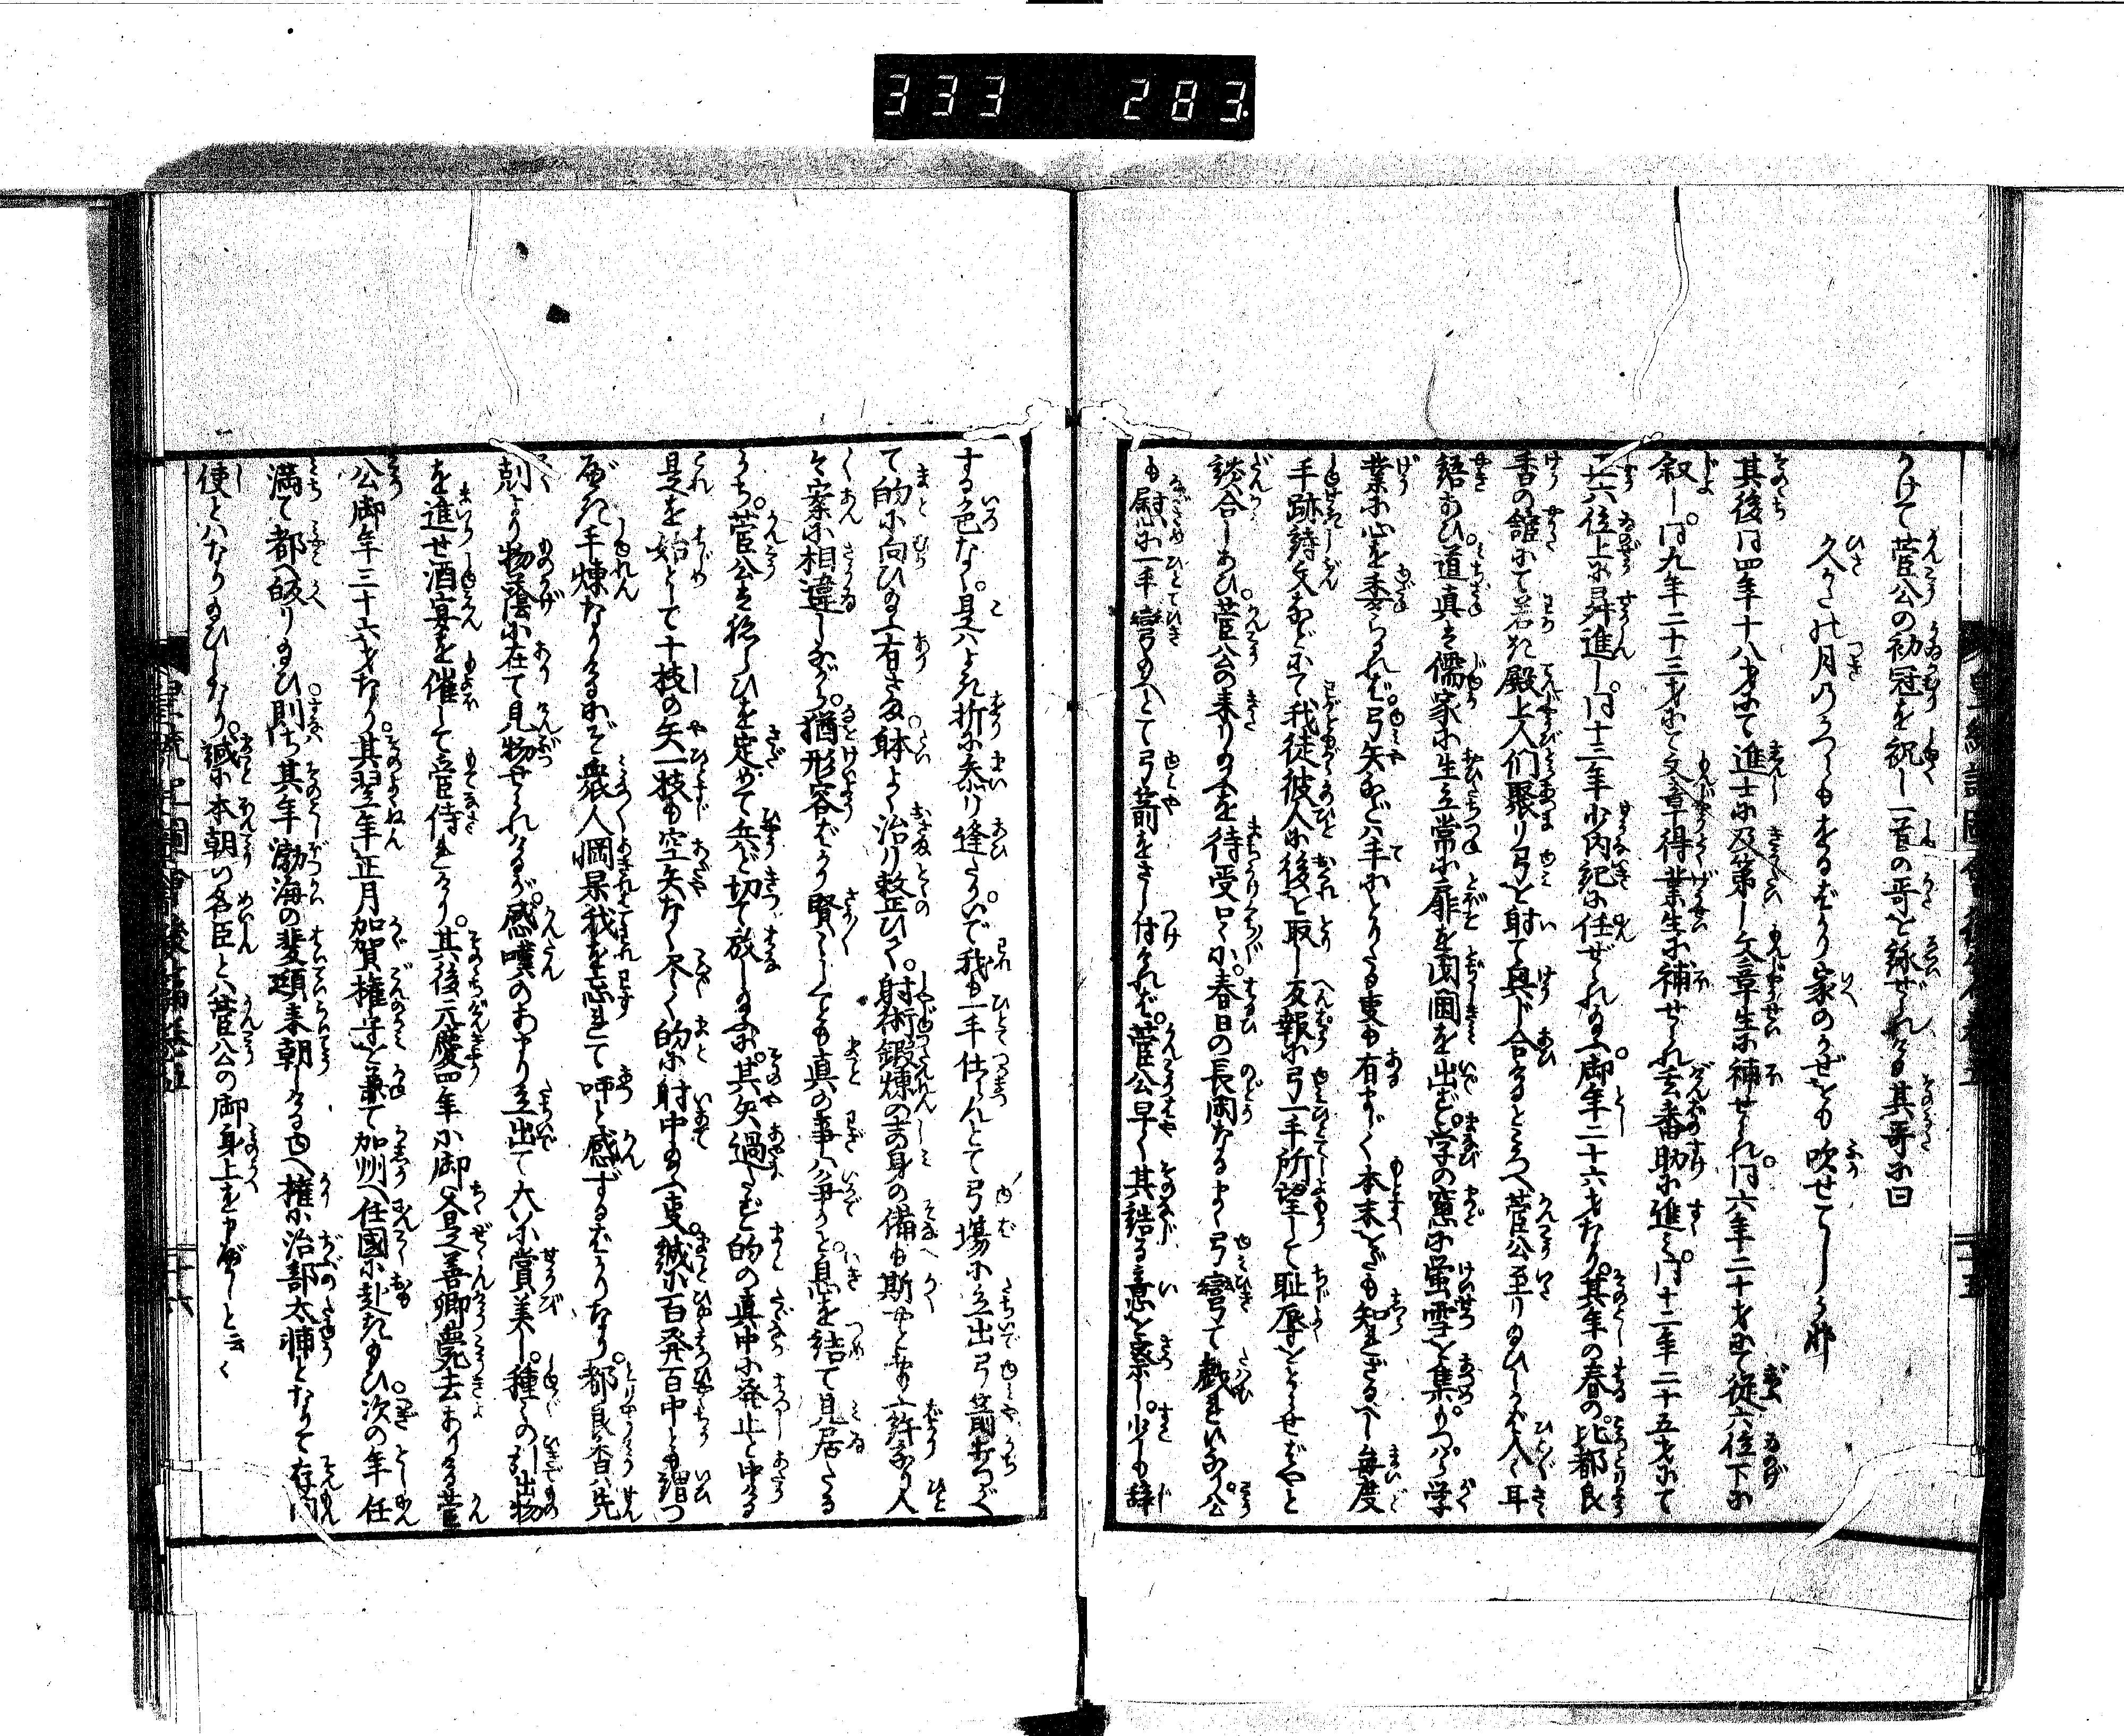 333 283
うけて菅公の初冠を祝し一首の哥を詠ぜられける其哥に曰
久かたの月のかつらもをるばかり家のかぜをも吹せてしが那
其後同四年十八才にて進士に及第し文章生に補せられ同六年二十才にて従六位下に
叙し同九年二十三才にて文章得業生に補せられ玄番助に進み同十二年二十五才にて
正六位上に昇進し同十三年少内記に任ぜられ給ふ御年二十六才なり其年の春の比都良
香の館にて若き殿上人们聚り弓を射て興じ合るところへ菅公至り給ひしかば人々耳
語あひ道真は儒家に生立常に扉を閉園を出ず学の窓に蛍雪を集めつゝ学
業に心を委られば弓矢などは手にとりたる事も有まじく本末をだも知ざるべし毎度
手跡詩文などにて我徒彼人に後を取し反報に弓一手所望して耻辱をとらせばやと
談合しあひ菅公の来り給ふを待受口々に春日の長閑なるまゝ弓彎て戯まいらす公
も慰に一手彎給へとて弓箭をさし付ければ菅公早く其詰る意を察し少しも辞
する色なく是はよき折に参り逢たり いで我も一手仕らんとて弓場に立出弓箭打つがひ
て的に向ひ給ふ有さま躰よく治り整ひて射術鍛煉の士の身の備も斯やと計なり人
々案に相違しながら猶形容ばかり賢くとも真の事は争かと息を結て見居たる
うち菅公は狙ひを定めて兵ど切て放し給ふに其矢過たず的の真中に発止と中る
是を始として十枝の矢一枝も空矢なく尽く的に射中給ふ事誠に百発百中とも謂つ
べき手煉なりけるにぞ衆人惘果我を忘れて呼と感ずるばかりなり都良香は先
剋より物蔭に在て見物せられけるが感嘆のあまり立出て大に賞美し種々の引出物
を進せ酒宴を催して管待れけり其後元慶四年に御父是善卿薨去ありける菅
公御年三十六才なり其翌年正月加賀権守を兼て加州へ任國に赴き給ひ次の年任
満て都へ皈り給ひ則ち其年渤海の裴頲来朝しける由へ権に治部太輔となりて存問
使とはなり給ひしなり誠に本朝の名臣とは菅公の御身上を申べしときく